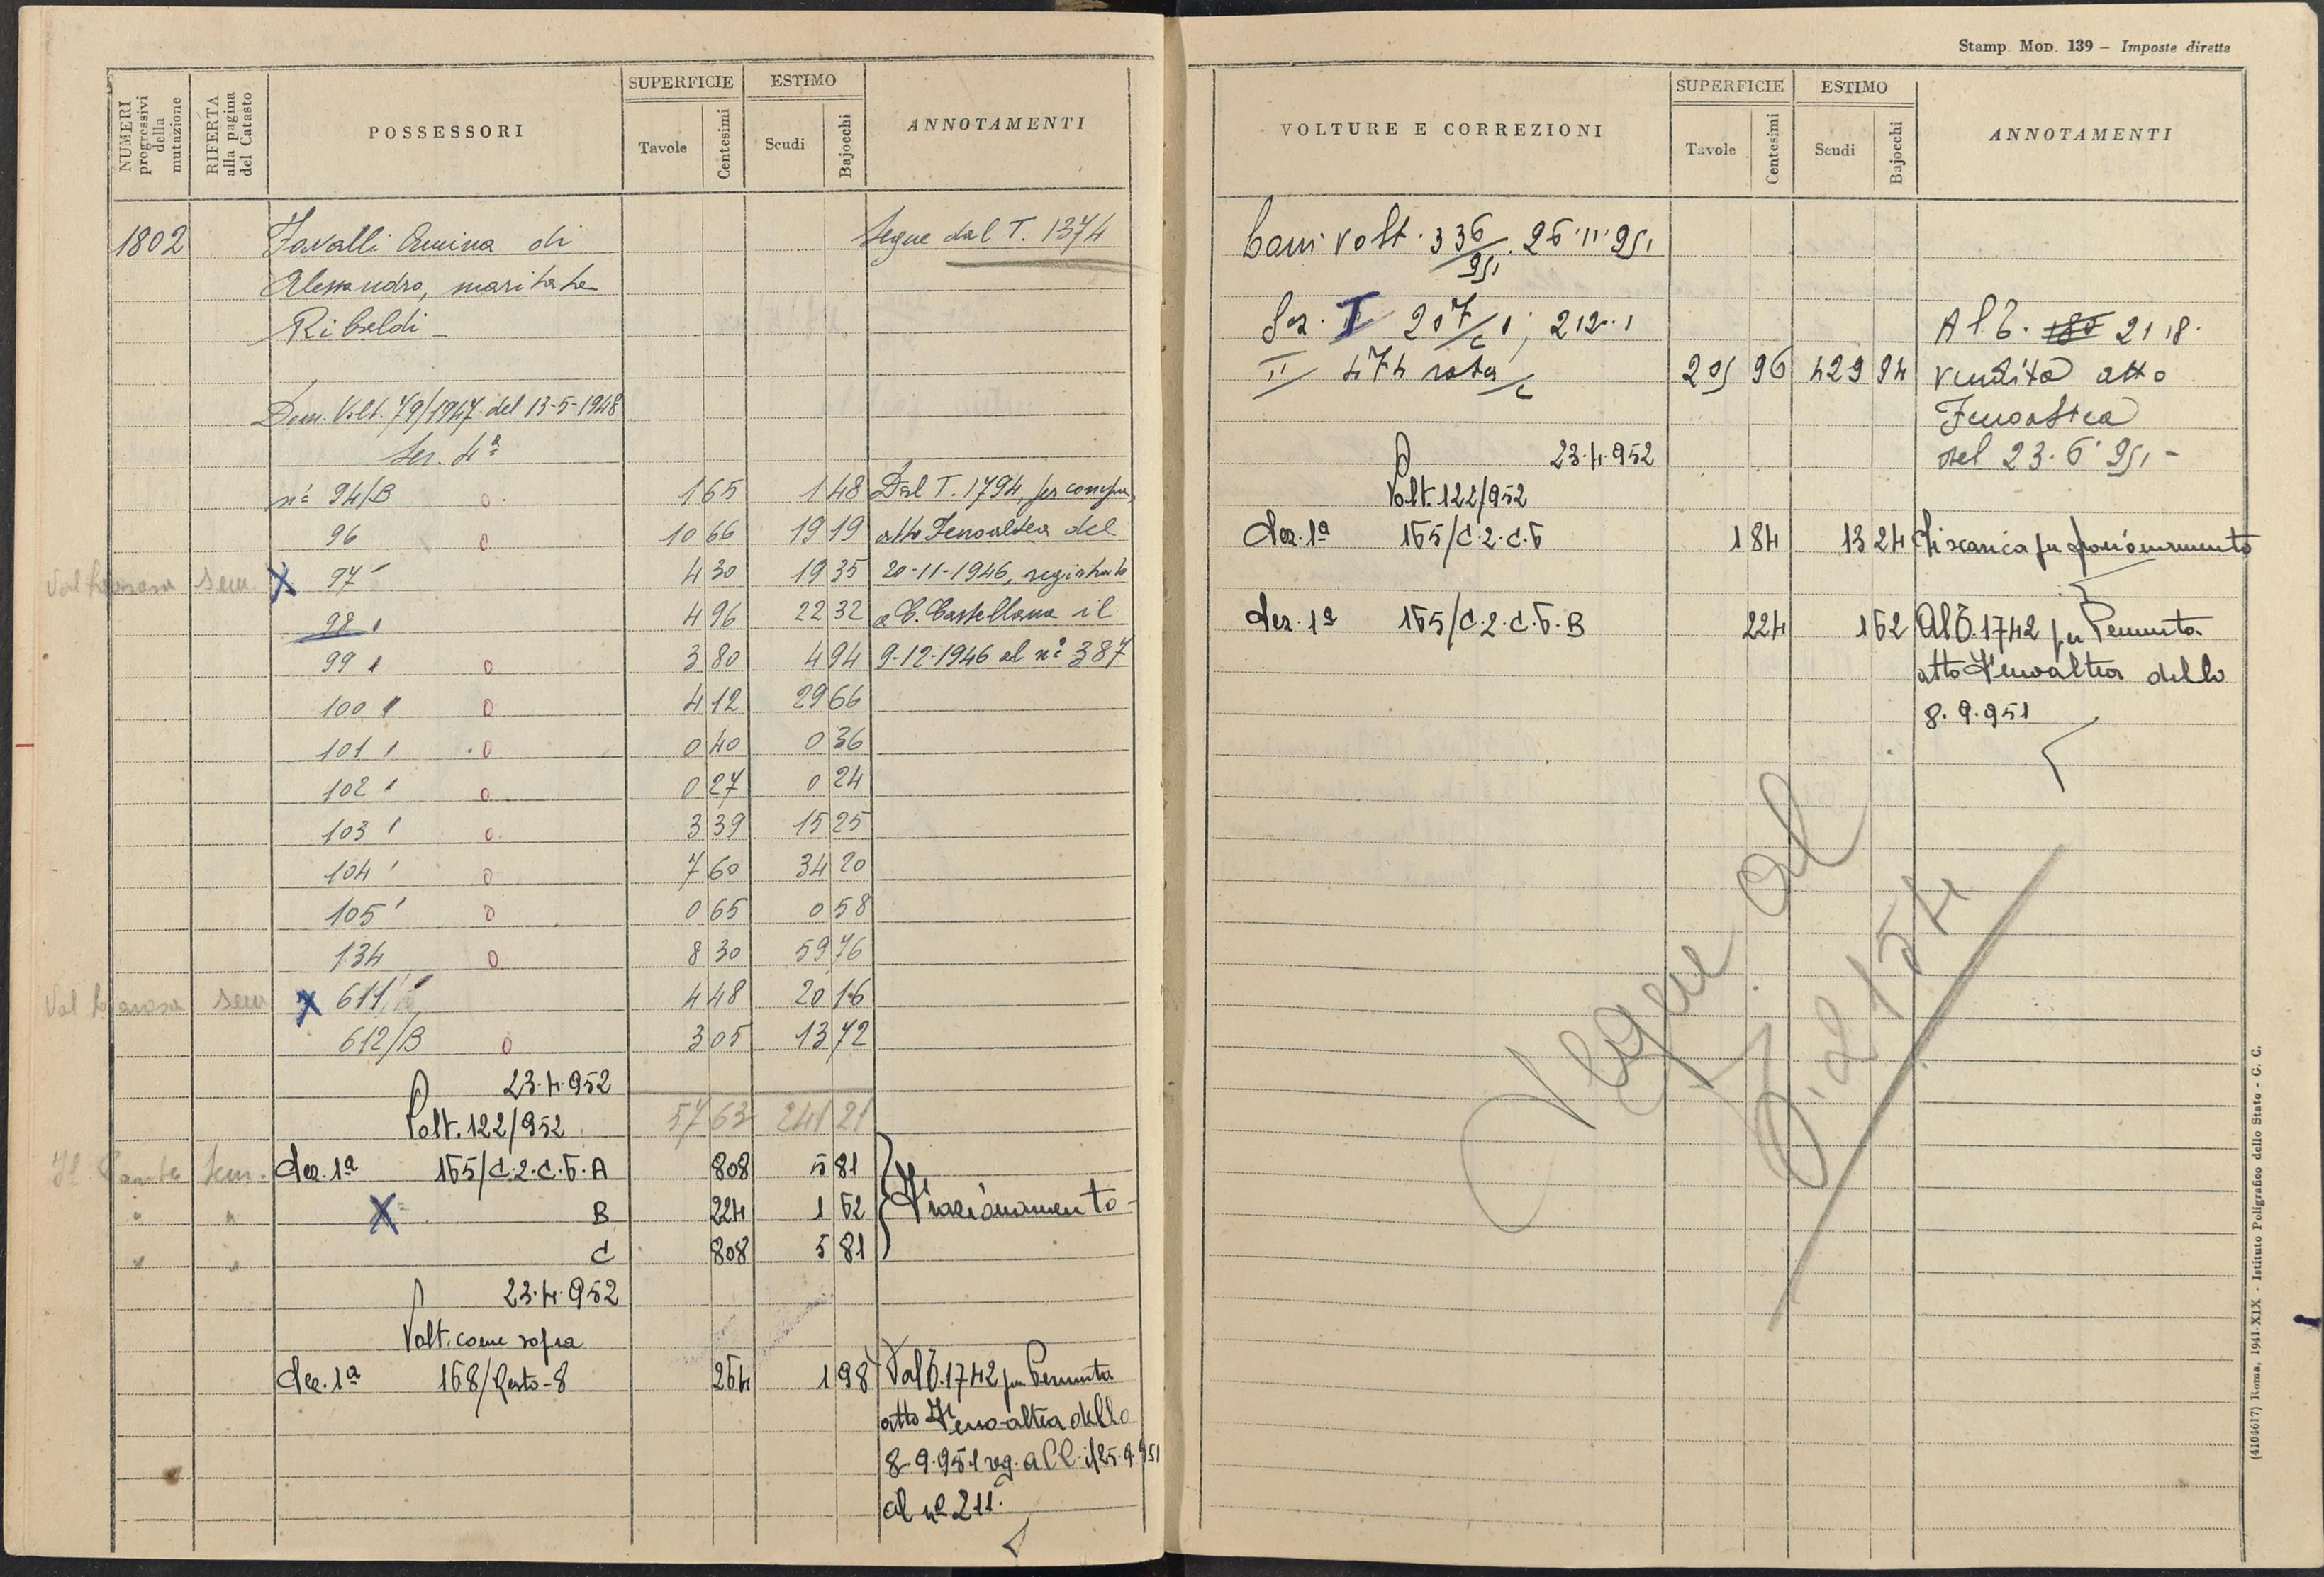 NUMERI progressivi della mutazione
RIFERTA alla pagina del Catasto
POSSESSORI
SUPERFICIE
Tavole
Centesimi
ESTIMO
Scudi
Bajocchi
ANNOTAMENTI
1802 Favalli Amina di Segue dal T. 1374
Alessandro, maritata
Ribaldi -
Dom. Volt. 79/1947 del 13-5-1948
Sez. 4ª
nº 94/B 0 1 65 1 48 Dal T. 1794, per compra,
96 0 10 66 19 19 atto Fenoaltea del
sem. X 97 4 30 19 35 20-11-1946, registrato
98 4 96 22 32 a C. Castellana il
99 0 3 80 4 94 9-12-1946 al nº 387
100 0 4 12 29 66
101 0 0 40 0 36
102 0 0 27 0 24
103 0 3 39 15 25
104 0 7 60 34 20
105 0 0 65 0 58
134 0 8 30 59 76
sem X 611 4 48 20 16
612/B 0 3 05 13 72
23.4.952
Volt. 122/952 57 63 241 21
sem. Sez. 1ª 165/C.2.C.6.A 808 5 81
" " X B 224 1 62 Frazionamento -
" " C 808 5 81
23.4.952
Volt. come sopra
Sez. 1ª 168/Resto-8 264 1 98 Dal T. 1742 per Permuta
atto Fenoaltea dello
8-9-951 reg. a C.C. il 25.9.951
al nº 211.
Stamp. MOD. 139 – Imposte dirette
VOLTURE E CORREZIONI
SUPERFICIE
Tavole
Centesimi
ESTIMO
Scudi
Bajocchi
ANNOTAMENTI
volt. 336/951. 26.11.951
Sez. I 207/c 1; 212.1 Al T. 2118.
II 474 rata/c 205 96 429 94 vendita atto
Fenoaltea
del 23.6.951 -
23.4.952
Volt. 122/952
Sez. 1ª 165/C.2.C.6 1 84 13 24 Si scarica per frazionamento
Sez. 1ª 165/C.2.C.6.B 224 1 62 Al T. 1742 per Permuta
atto Fenoaltea dello
8.9.951
Segue al
T. 2154
(4104617) Roma, 1941-XIX - Istituto Poligrafico dello Stato - G. C.